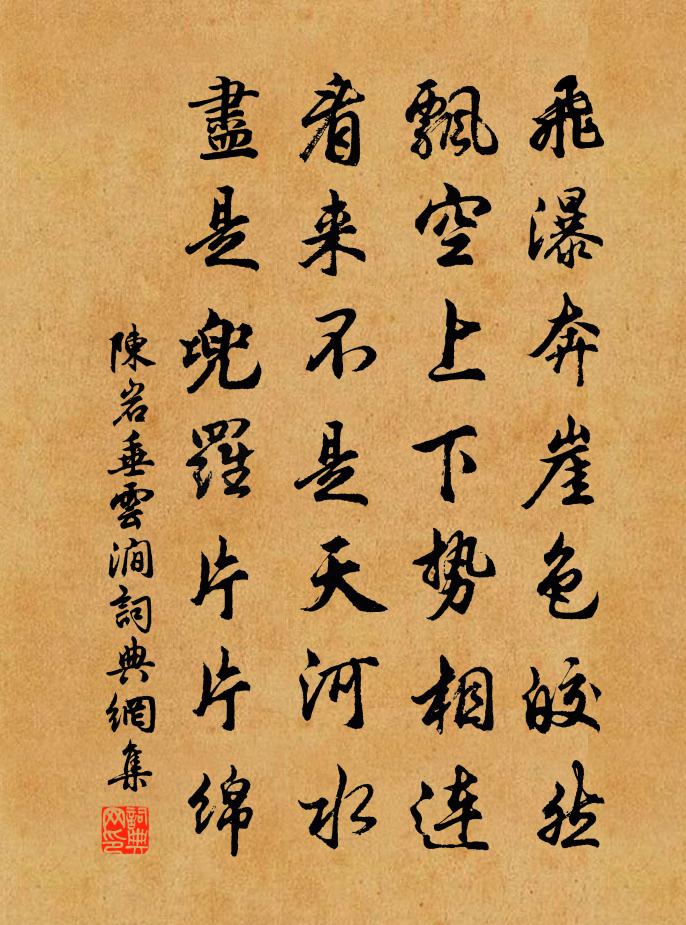 飛瀑奔崖色皎然
飄空上下勢相連
看来不是天河水
盡是兜羅片片綿
陳岩垂雲澗詞典網集
詞典网印